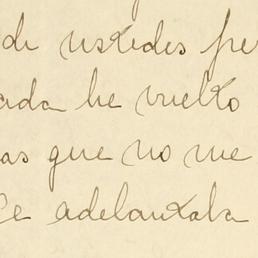 de ustedes pe
ada he vuelto
as que no me
le adelantaba